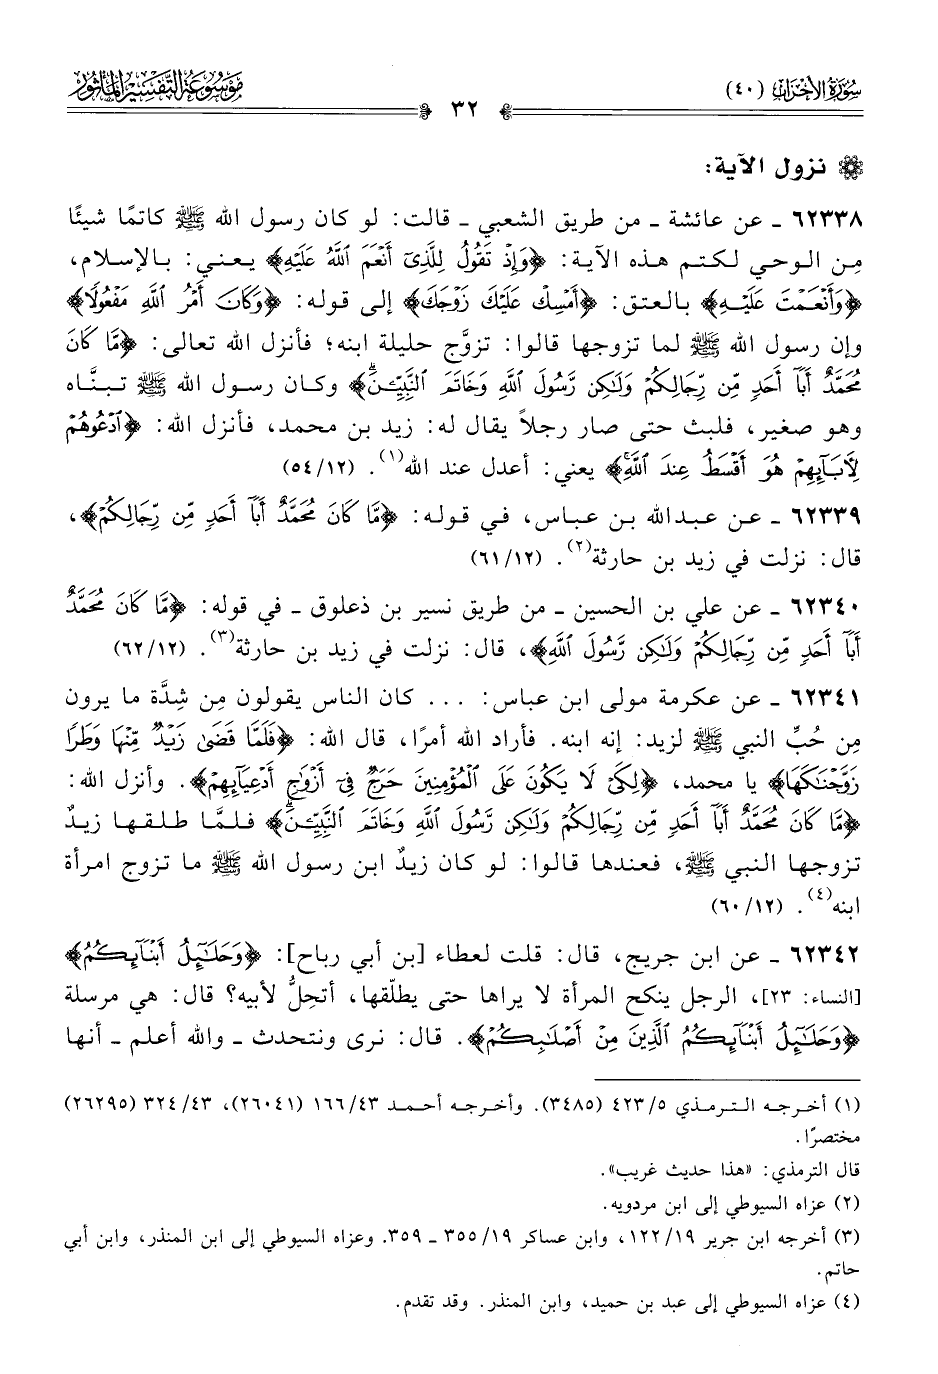 سُورَةُ الأَحْزَابِ (٤٠)
٣٢
مَوْسُوعَةُ التَّفْسِيرِ المَأْثُورِ
نزول الآية:
٦٢٣٣٨ ـ عن عائشة ـ من طريق الشعبي ـ قالت: لو كان رسول الله ﷺ كاتمًا شيئًا
مِن الوحي لكتم هذه الآية: ﴿وَإِذۡ تَقُولُ لِلَّذِيٓ أَنۡعَمَ ٱللَّهُ عَلَيۡهِ﴾ يعني: بالإسلام،
﴿وَأَنۡعَمۡتَ عَلَيۡهِ﴾ بالعتق: ﴿أَمۡسِكۡ عَلَيۡكَ زَوۡجَكَ﴾ إلى قوله: ﴿وَكَانَ أَمۡرُ ٱللَّهِ مَفۡعُولٗا﴾
وإن رسول الله ﷺ لما تزوجها قالوا: تزوَّج حليلة ابنه؛ فأنزل الله تعالى: ﴿مَّا كَانَ
مُحَمَّدٌ أَبَآ أَحَدٖ مِّن رِّجَالِكُمۡ وَلَٰكِن رَّسُولَ ٱللَّهِ وَخَاتَمَ ٱلنَّبِيِّـۧنَۗ﴾ وكان رسول الله ﷺ تبنَّاه
وهو صغير، فلبث حتى صار رجلاً يقال له: زيد بن محمد، فأنزل الله: ﴿ٱدۡعُوهُمۡ
لِأٓبَآئِهِمۡ هُوَ أَقۡسَطُ عِندَ ٱللَّهِۚ﴾ يعني: أعدل عند الله(١). (٥٤/١٢)
٦٢٣٣٩ ـ عن عبدالله بن عباس، في قوله: ﴿مَّا كَانَ مُحَمَّدٌ أَبَآ أَحَدٖ مِّن رِّجَالِكُمۡ﴾،
قال: نزلت في زيد بن حارثة(٢). (٦١/١٢)
٦٢٣٤٠ ـ عن علي بن الحسين ـ من طريق نسير بن ذعلوق ـ في قوله: ﴿مَّا كَانَ مُحَمَّدٌ
أَبَآ أَحَدٖ مِّن رِّجَالِكُمۡ وَلَٰكِن رَّسُولَ ٱللَّهِ﴾، قال: نزلت في زيد بن حارثة(٣). (٦٢/١٢)
٦٢٣٤١ ـ عن عكرمة مولى ابن عباس: ... كان الناس يقولون مِن شِدَّة ما يرون
مِن حُبِّ النبي ﷺ لزيد: إنه ابنه. فأراد الله أمرًا، قال الله: ﴿فَلَمَّا قَضَىٰ زَيۡدٞ مِّنۡهَا وَطَرٗا
زَوَّجۡنَٰكَهَا﴾ يا محمد، ﴿لِكَيۡ لَا يَكُونَ عَلَى ٱلۡمُؤۡمِنِينَ حَرَجٞ فِيٓ أَزۡوَٰجِ أَدۡعِيَآئِهِمۡ﴾. وأنزل الله:
﴿مَّا كَانَ مُحَمَّدٌ أَبَآ أَحَدٖ مِّن رِّجَالِكُمۡ وَلَٰكِن رَّسُولَ ٱللَّهِ وَخَاتَمَ ٱلنَّبِيِّـۧنَۗ﴾ فلمَّا طلقها زيدٌ
تزوجها النبي ﷺ، فعندها قالوا: لو كان زيدٌ ابن رسول الله ﷺ ما تزوج امرأة
ابنه(٤). (٦٠/١٢)
٦٢٣٤٢ ـ عن ابن جريج، قال: قلت لعطاء [بن أبي رباح]: ﴿وَحَلَٰٓئِلُ أَبۡنَآئِكُمُ﴾
[النساء: ٢٣]، الرجل ينكح المرأة لا يراها حتى يطلّقها، أتحِلُّ لأبيه؟ قال: هي مرسلة
﴿وَحَلَٰٓئِلُ أَبۡنَآئِكُمُ ٱلَّذِينَ مِنۡ أَصۡلَٰبِكُمۡ﴾. قال: نرى ونتحدث ـ والله أعلم ـ أنها
(١) أخرجه الترمذي ٤٢٣/٥ (٣٤٨٥). وأخرجه أحمد ١٦٦/٤٣ (٢٦٠٤١)، ٣٢٤/٤٣ (٢٦٢٩٥)
مختصرًا.
قال الترمذي: «هذا حديث غريب».
(٢) عزاه السيوطي إلى ابن مردويه.
(٣) أخرجه ابن جرير ١٢٢/١٩، وابن عساكر ٣٥٥/١٩ ـ ٣٥٩. وعزاه السيوطي إلى ابن المنذر، وابن أبي
حاتم.
(٤) عزاه السيوطي إلى عبد بن حميد، وابن المنذر. وقد تقدم.